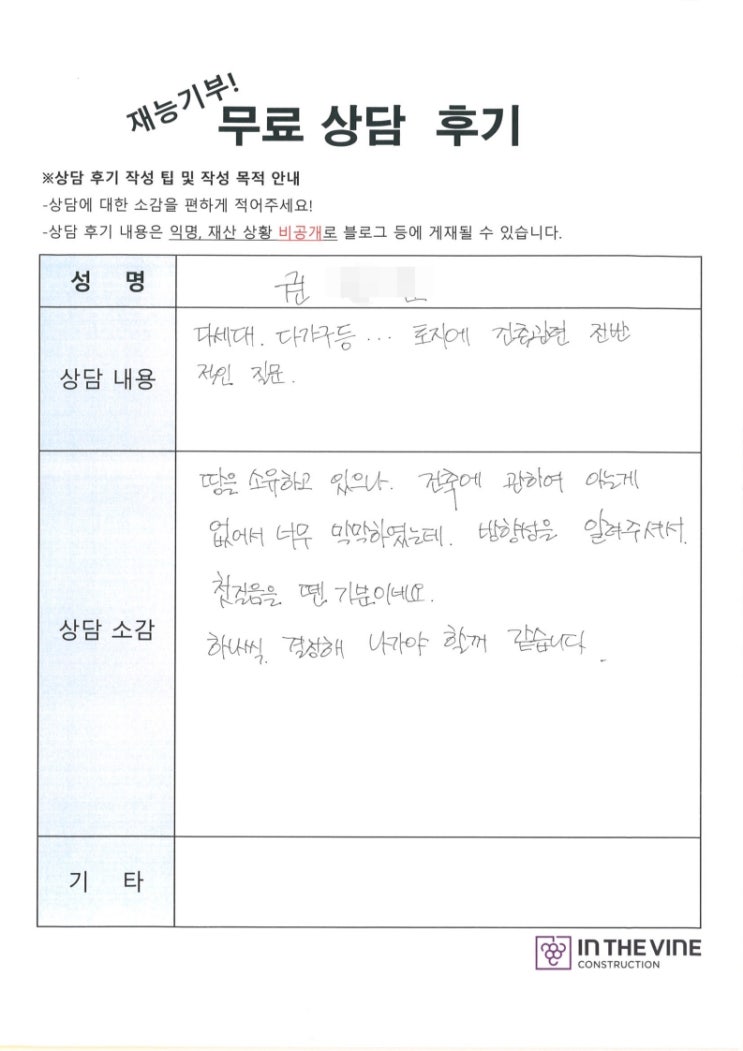 재능기부!
무료 상담 후기
※상담 후기 작성 팁 및 작성 목적 안내
-상담에 대한 소감을 편하게 적어주세요!
-상담 후기 내용은 익명, 재산 상황 비공개로 블로그 등에 게재될 수 있습니다.
성 명
권
상담 내용
다세대. 다가구등 ... 토지에 건축관련 전반
적인 질문.
상담 소감
땅을 소유하고 있으나. 건축에 관하여 아는게
없어서 너무 막막하였는데. 방향성을 알려주셔서.
첫걸음을 뗀 기분이네요.
하나씩 결정해 나가야 할꺼 같습니다.
기 타
IN THE VINE
CONSTRUCTION